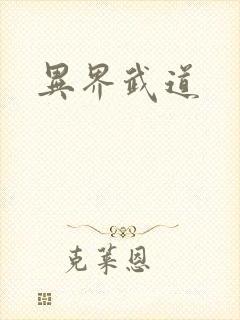 異界武道
克萊恩